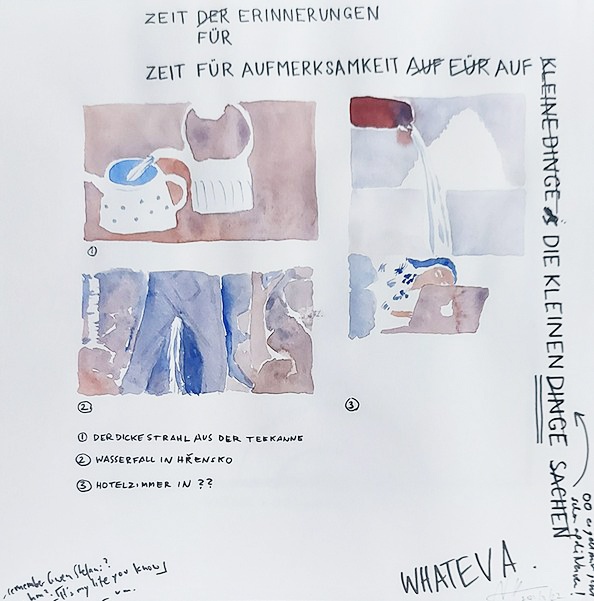 ZEIT DER ERINNERUNGEN
FÜR
ZEIT FÜR AUFMERKSAMKEIT AUF FÜR AUF
KLEINE DINGE
DIE KLEINEN DINGE SACHEN
①
②
③
① DER DICKE STRAHL AUS DER TEEKANNE
② WASSERFALL IN HŘENSKO
③ HOTELZIMMER IN ??
remember Gwen Stefani?
hm? It's my life you know
WHATEVA.